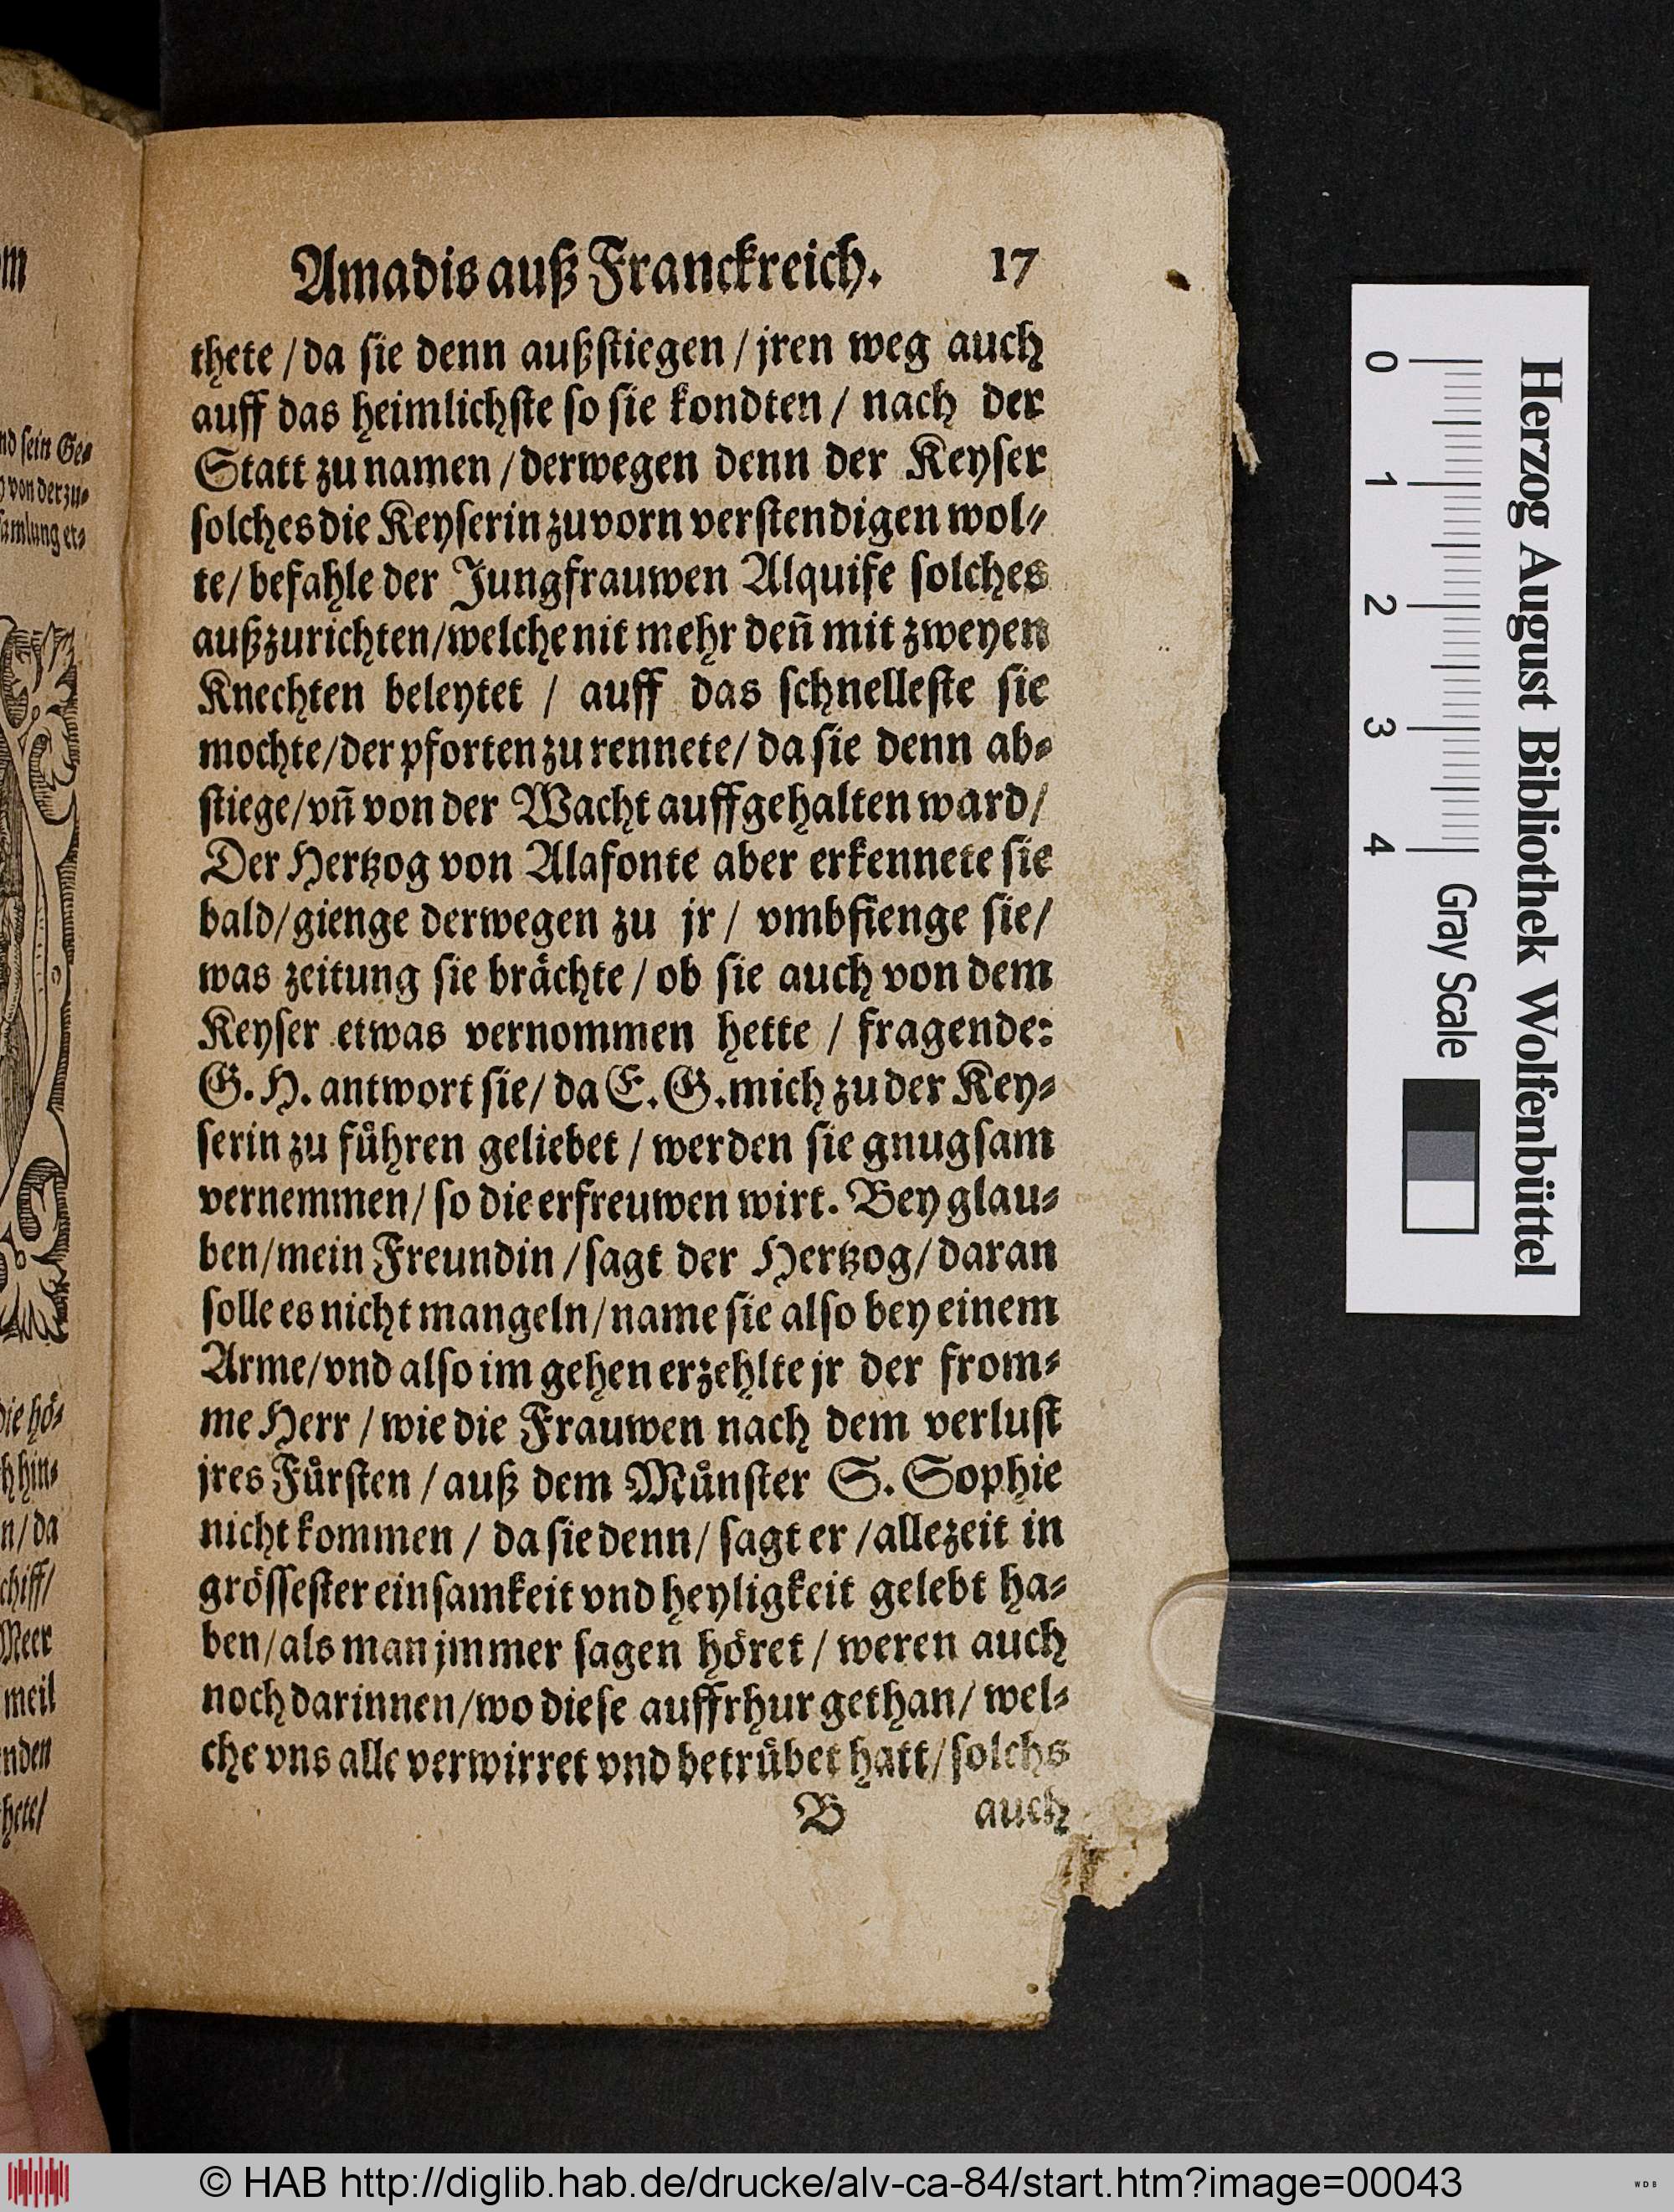 Amadis auß Franckreich. 17
thete / da sie denn außstiegen / jren weg auch
auff das heimlichste so sie kondten / nach der
Statt zu namen / derwegen denn der Keyser
solches die Keyserin zuvorn verstendigen wol⸗
te / befahle der Jungfrauwen Alquife solches
außzurichten / welche nit mehr deñ mit zweyen
Knechten beleytet / auff das schnelleste sie
mochte / der pforten zu rennete / da sie denn ab⸗
stiege / vñ von der Wacht auffgehalten ward /
Der Hertzog von Alafonte aber erkennete sie
bald / gienge derwegen zu jr / vmbfienge sie /
was zeitung sie brächte / ob sie auch von dem
Keyser etwas vernommen hette / fragende:
G. H. antwort sie / da E. G. mich zu der Key⸗
serin zu führen geliebet / werden sie gnugsam
vernemmen / so die erfreuwen wirt. Bey glau⸗
ben / mein Freundin / sagt der Hertzog / daran
solle es nicht mangeln / name sie also bey einem
Arme / vnd also im gehen erzehlte jr der from⸗
me Herr / wie die Frauwen nach dem verlust
jres Fürsten / auß dem Münster S. Sophie
nicht kommen / da sie denn / sagt er / allezeit in
grössester einsamkeit vnd heyligkeit gelebt ha⸗
ben / als man jmmer sagen höret / weren auch
noch darinnen / wo diese auffrhur gethan / wel⸗
che vns alle verwirret vnd betrübet hatt / solchs
B auch
nd sein Ge⸗
von der zu⸗
samlung er⸗
die hö⸗
hin⸗
n / da
chiff /
Meer
meil
nden
hete /
Herzog August Bibliothek Wolfenbüttel
0 1 2 3 4 Gray Scale
© HAB http://diglib.hab.de/drucke/alv-ca-84/start.htm?image=00043
WDB